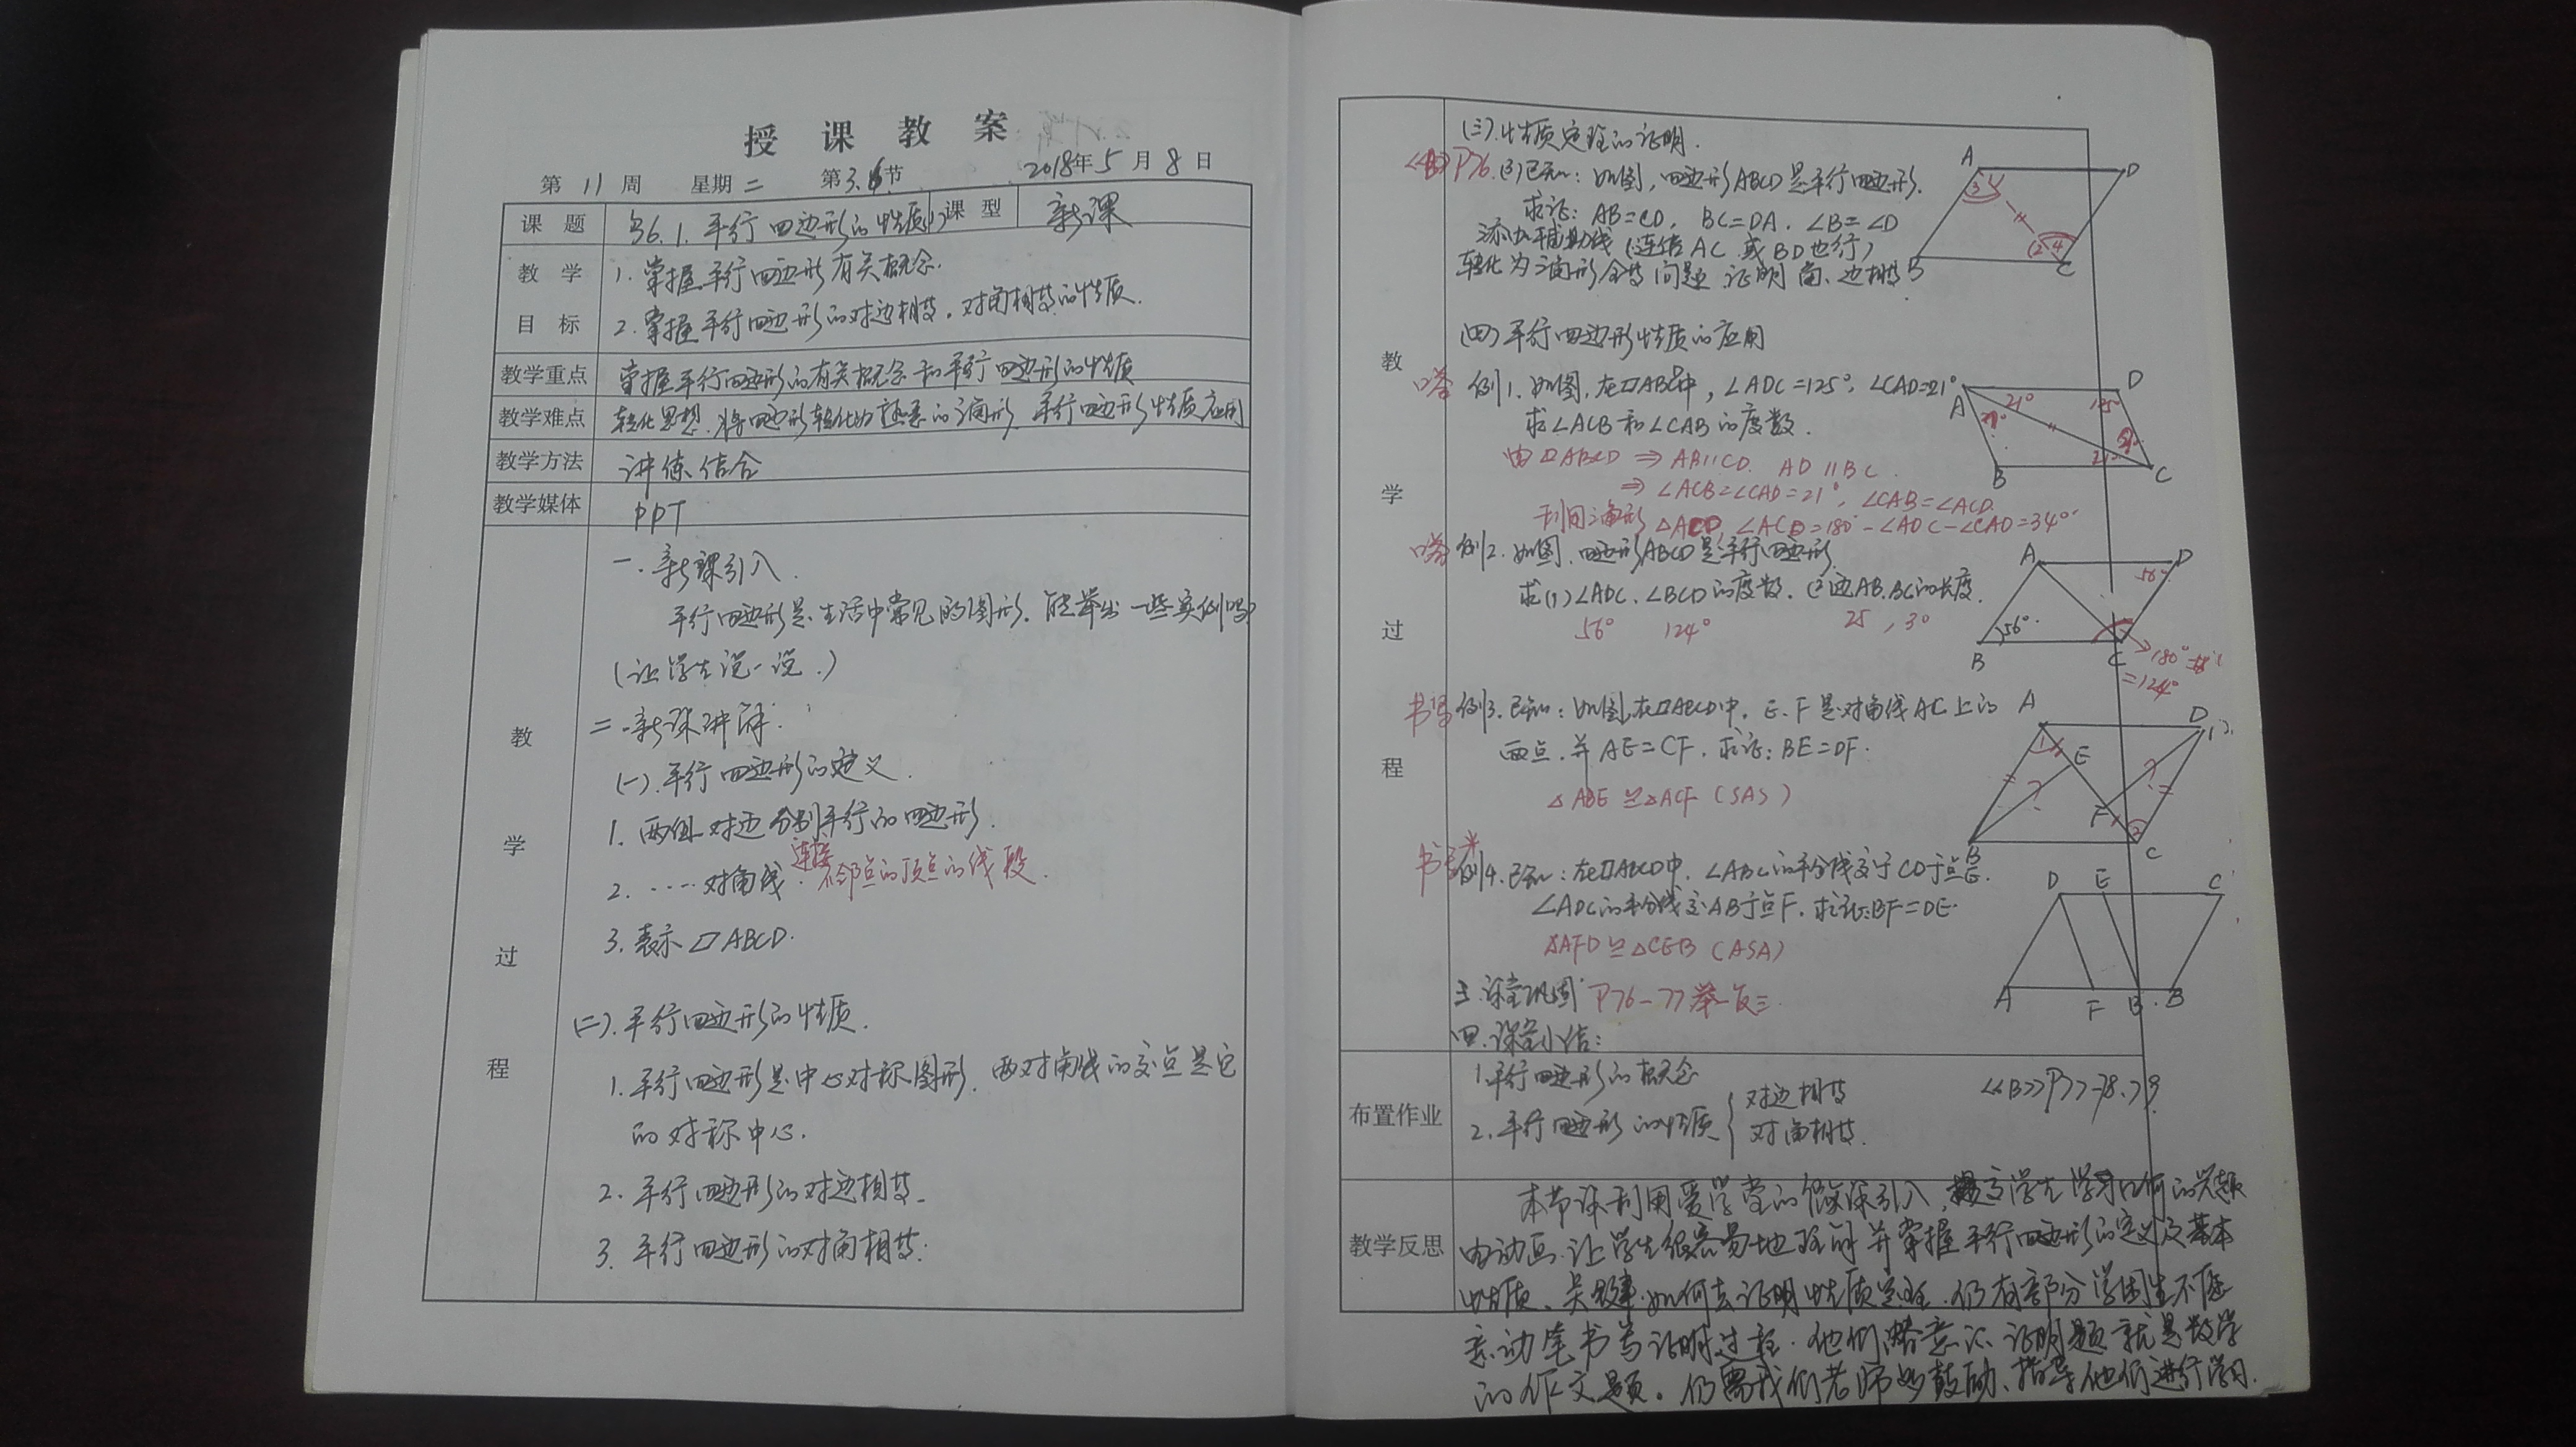 授课教案
第 11 周 星期二 第3.6节 2018年5月8日
课题 §6.1.平行四边形的性质(1) 课型 新课
教学目标
1.掌握平行四边形有关概念.
2.掌握平行四边形的对边相等.对角相等的性质.
教学重点 掌握平行四边形的有关概念和平行四边形的性质
教学难点 转化思想.将四边形转化为熟悉的三角形.平行四边形性质应用
教学方法 讲练结合
教学媒体 PPT
教学过程
一.新课引入.
平行四边形是生活中常见的图形.能举出一些实例吗?
(让学生说一说.)
二.新课讲解.
(一).平行四边形的定义.
1.两组对边分别平行的四边形.
2.……对角线.连接不邻点的顶点的线段.
3.表示▱ABCD.
(二).平行四边形的性质.
1.平行四边形是中心对称图形.两对角线的交点是它
的对称中心.
2.平行四边形的对边相等.
3.平行四边形的对角相等.
教学过程
(三).性质定理的证明.
P76.(3)已知:如图,四边形ABCD是平行四边形.
求证:AB=CD, BC=DA. ∠B=∠D
添加辅助线(连结AC.或BD也行)
转化为三角形全等问题 证明角、边相等
A D B C 3 2 4
(四)平行四边形性质的应用
口答 例1.如图,在▱ABCD中,∠ADC=125°,∠CAD=21°
求∠ACB和∠CAB的度数.
由▱ABCD ⇒ AB∥CD. AD∥BC.
⇒ ∠ACB=∠CAD=21°, ∠CAB=∠ACD.
利用三角形△ACD ∠ACD=180°-∠ADC-∠CAD=34°
A D B C 21° 125° 21°
口答 例2.如图.四边形ABCD是平行四边形
求(1)∠ADC、∠BCD的度数.(2)边AB.BC的长度.
56° 124° 25,30
A D B C 56° 56° 180°
=124°
书写 例3.已知:如图,在▱ABCD中.E、F是对角线AC上的
两点.并AE=CF.求证:BE=DF.
△ABE≌△ACF(SAS)
A D E F B C 1 2
书写* 例4.已知:在▱ABCD中.∠ABC的平分线交于CD于点E.
∠ADC的平分线交AB于点F.求证:BF=DE.
△AFD≌△CEB(ASA)
D E C A F B B
三.课堂巩固 P76-77 举一反三
四.课堂小结:
1.平行四边形的概念
2.平行四边形的性质 { 对边相等 对角相等.
布置作业 <<B>>P77-78.79
教学反思
本节课利用爱学堂的微课引入,提高学生学习几何的兴趣
由动画.让学生很容易地理解并掌握平行四边形的定义及基本
性质、关键.如何去证明性质定理.仍有部分学困生不愿
意动笔书写证明过程.他们 证明题就是数学
的作文题。仍需我们老师 鼓励、指导他们进行学习.